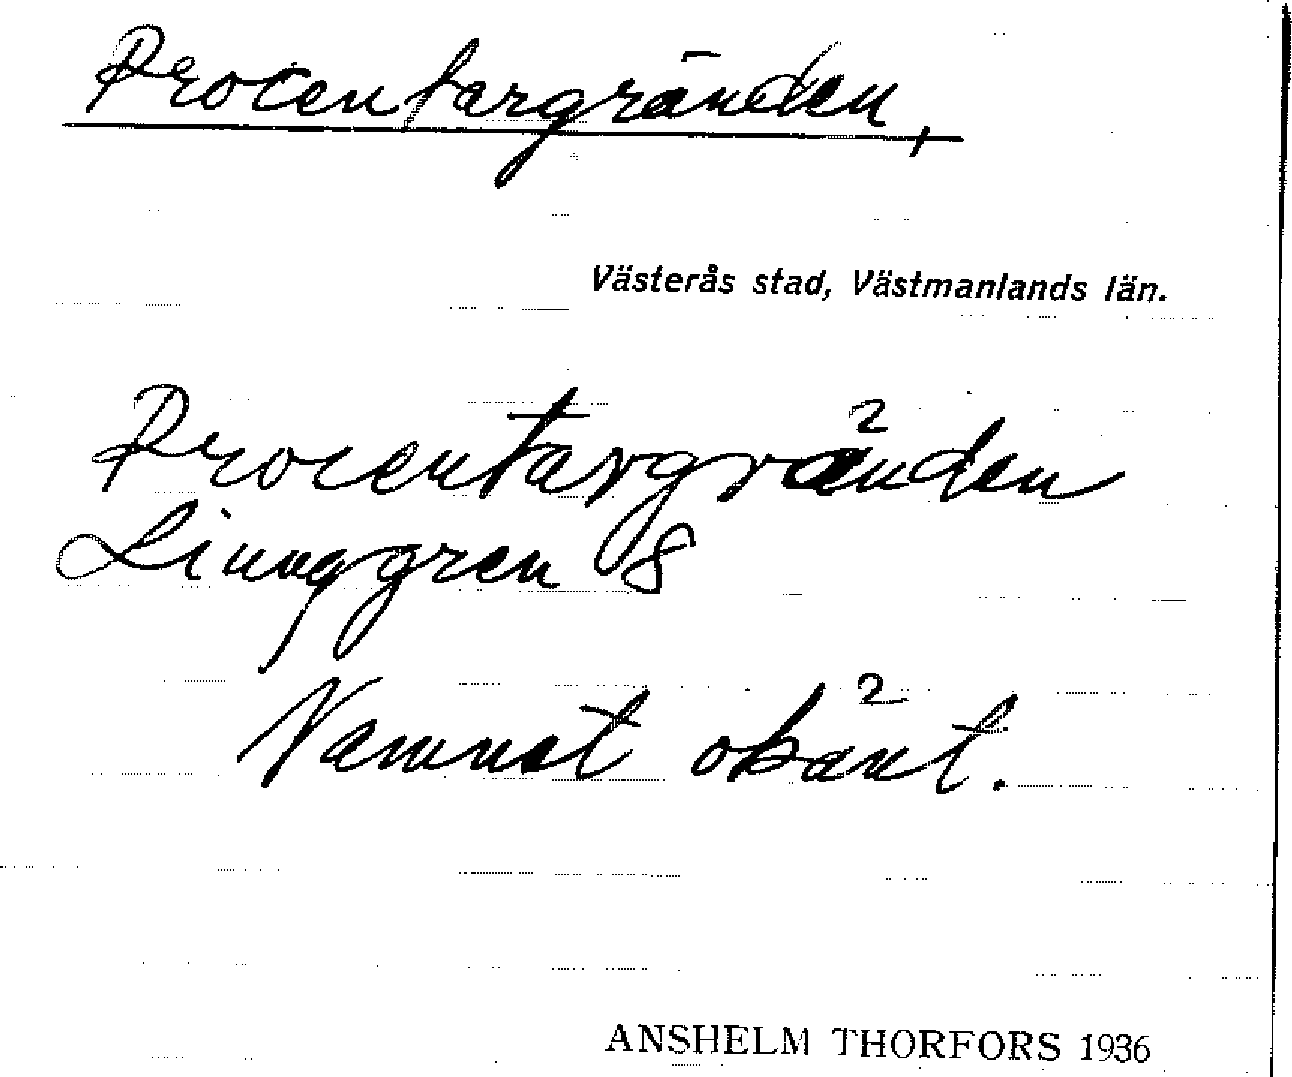 Procentargränden,
Västerås stad, Västmanlands län.
Procentargränden
8
Namnet okänt.
ANSHELM THORFORS 1936